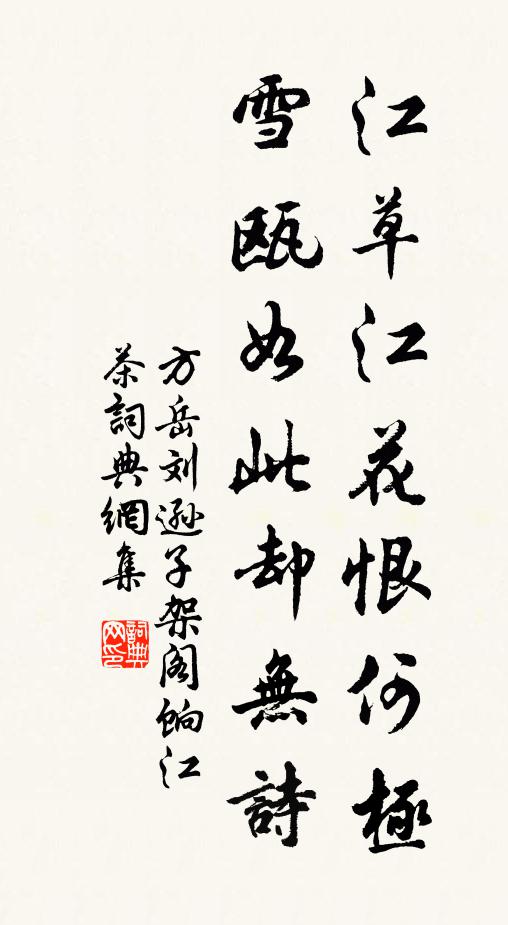 江草江花恨何極
雪甌如此却無詩
方岳刘遜子架阁餉江
茶詞典網集
詞典网印